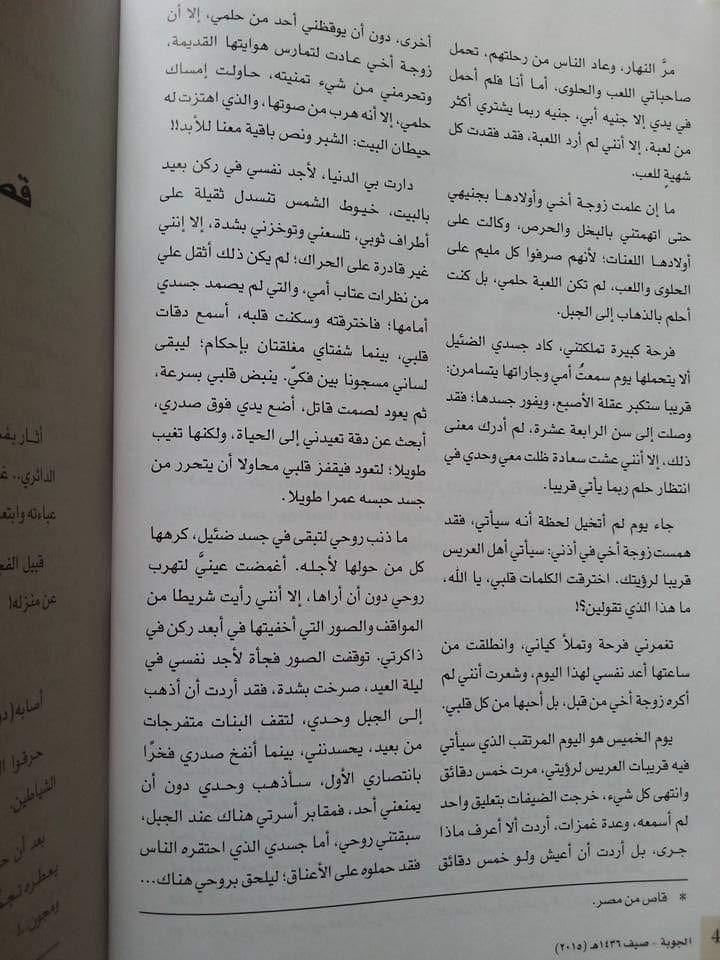 مرَّ النهار، وعاد الناس من رحلتهم، تحمل
صاحباتي اللعب والحلوى، أما أنا فلم أحمل
في يدي إلا جنيه أبي، جنيه ربما يشتري أكثر
من لعبة، إلا أنني لم أرد اللعبة، فقد فقدت كل
شهيةٍ للعب.
ما إن علمت زوجة أخي وأولادها بجنيهي
حتى اتهمتني بالبخل والحرص، وكالت على
أولادها اللعنات؛ لأنهم صرفوا كل مليم على
الحلوى واللعب، لم تكن اللعبة حلمي، بل كنت
أحلم بالذهاب إلى الجبل.
فرحة كبيرة تملكتني، كاد جسدي الضئيل
ألا يتحملها يوم سمعتُ أمي وجاراتها يتسامرن:
قريبا ستكبر عقلة الأصبع، ويفور جسدها؛ فقد
وصلت إلى سن الرابعة عشرة، لم أدرك معنى
ذلك، إلا أنني عشت سعادة ظلت معي وحدي في
انتظار حلم ربما يأتي قريبا.
جاء يوم لم أتخيل لحظة أنه سيأتي، فقد
همست زوجة أخي في أذني: سيأتي أهل العريس
قريبا لرؤيتك. اخترقت الكلمات قلبي، يا الله،
ما هذا الذي تقولين؟!
تغمرني فرحة وتملأ كياني، وانطلقت من
ساعتها أعد نفسي لهذا اليوم، وشعرت أنني لم
أكره زوجة أخي من قبل، بل أحبها من كل قلبي.
يوم الخميس هو اليوم المرتقب الذي سيأتي
فيه قريبات العريس لرؤيتي، مرت خمس دقائق
وانتهى كل شيء، خرجت الضيفات بتعليق واحد
لم أسمعه، وعدة غمزات، أردت ألا أعرف ماذا
جرى، بل أردت أن أعيش ولو خمس دقائق
أخرى، دون أن يوقظني أحد من حلمي، إلا أن
زوجة أخي عادت لتمارس هوايتها القديمة،
وتحرمني من شيء تمنيته، حاولت إمساك
حلمي، إلا أنه هرب من صوتها، والذي اهتزت له
حيطان البيت: الشبر ونص باقية معنا للأبد!!
دارت بي الدنيا، لأجد نفسي في ركن بعيد
بالبيت، خيوط الشمس تنسدل ثقيلة على
أطراف ثوبي، تلسعني وتوخزني بشدة، إلا إنني
غير قادرة على الحراك؛ لم يكن ذلك أثقل علي
من نظرات عتاب أمي، والتي لم يصمد جسدي
أمامها؛ فاخترقته وسكنت قلبه، أسمع دقات
قلبي، بينما شفتاي مغلقتان بإحكام؛ ليبقى
لساني مسجونا بين فكيّ. ينبض قلبي بسرعة،
ثم يعود لصمت قاتل، أضع يدي فوق صدري،
أبحث عن دقة تعيدني إلى الحياة، ولكنها تغيب
طويلا؛ لتعود فيقفز قلبي محاولا أن يتحرر من
جسد حبسه عمرا طويلا.
ما ذنب روحي لتبقى في جسد ضئيل، كرهها
كل من حولها لأجله. أغمضت عينيَّ لتهرب
روحي دون أن أراها، إلا أنني رأيت شريطا من
المواقف والصور التي أخفيتها في أبعد ركن في
ذاكرتي. توقفت الصور فجأة لأجد نفسي في
ليلة العيد، صرخت بشدة، فقد أردت أن أذهب
إلى الجبل وحدي، لتقف البنات متفرجات
من بعيد، يحسدنني، بينما أنفخ صدري فخرًا
بانتصاري الأول، سأذهب وحدي دون أن
يمنعني أحد، فمقابر أسرتي هناك عند الجبل،
سبقتني روحي، أما جسدي الذي احتقره الناس
فقد حملوه على الأعناق؛ ليلحق بروحي هناك...
* قاص من مصر.
الجوبة - صيف ١٤٣٦هـ (٢٠١٥)
4
الدائري..
عباءته
قبيل
عن منزله!
حرقوا
الشياطين.
بعد أن
ومجون..!